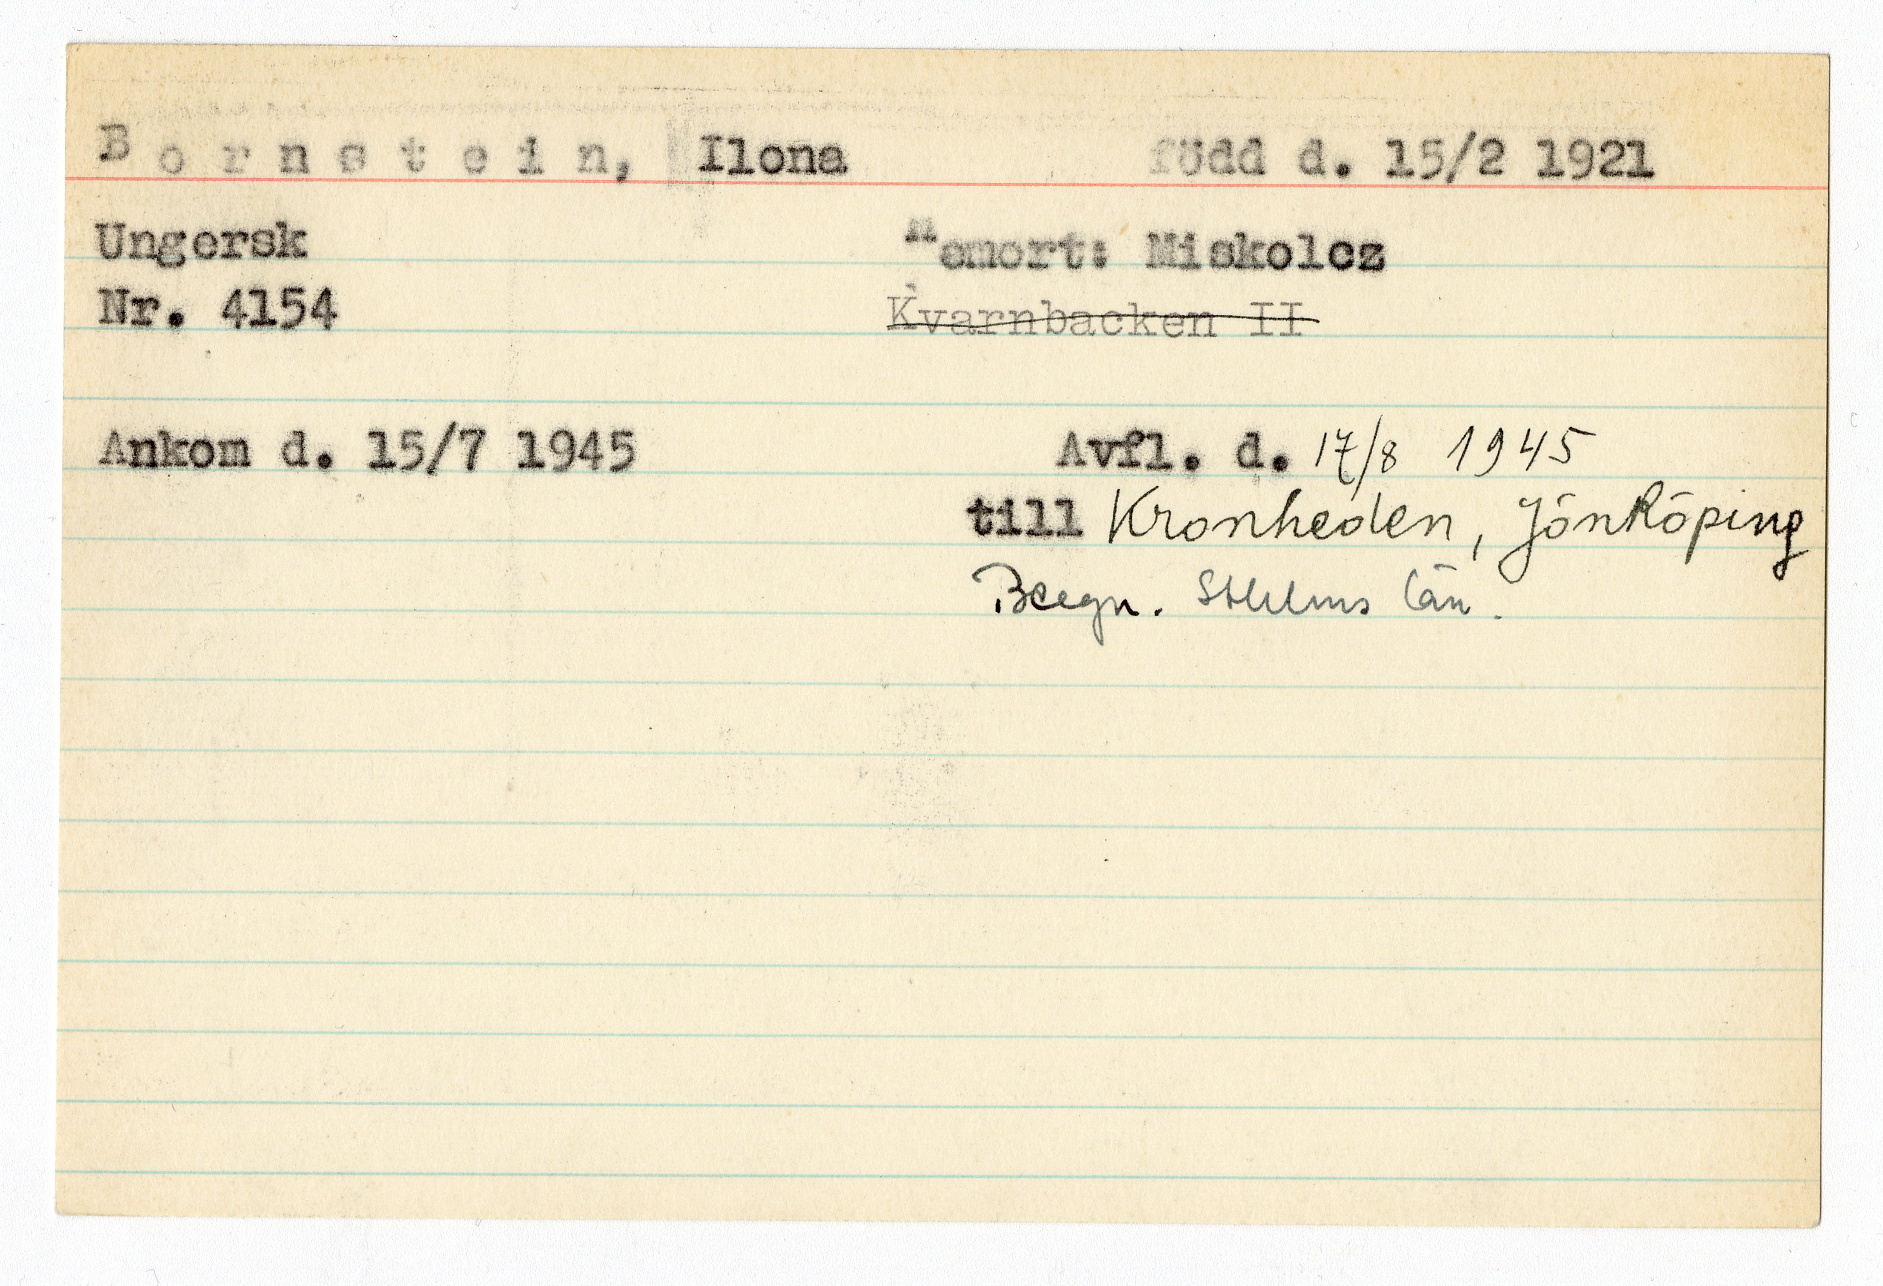 Bornstein, Ilona född d. 15/2 1921
Ungersk Hemort: Miskolcz
Nr. 4154 Kvarnbacken II
Ankom d. 15/7 1945 Avfl. d. 17/8 1945
till Kronheden, Jönköping
Sthlms län.